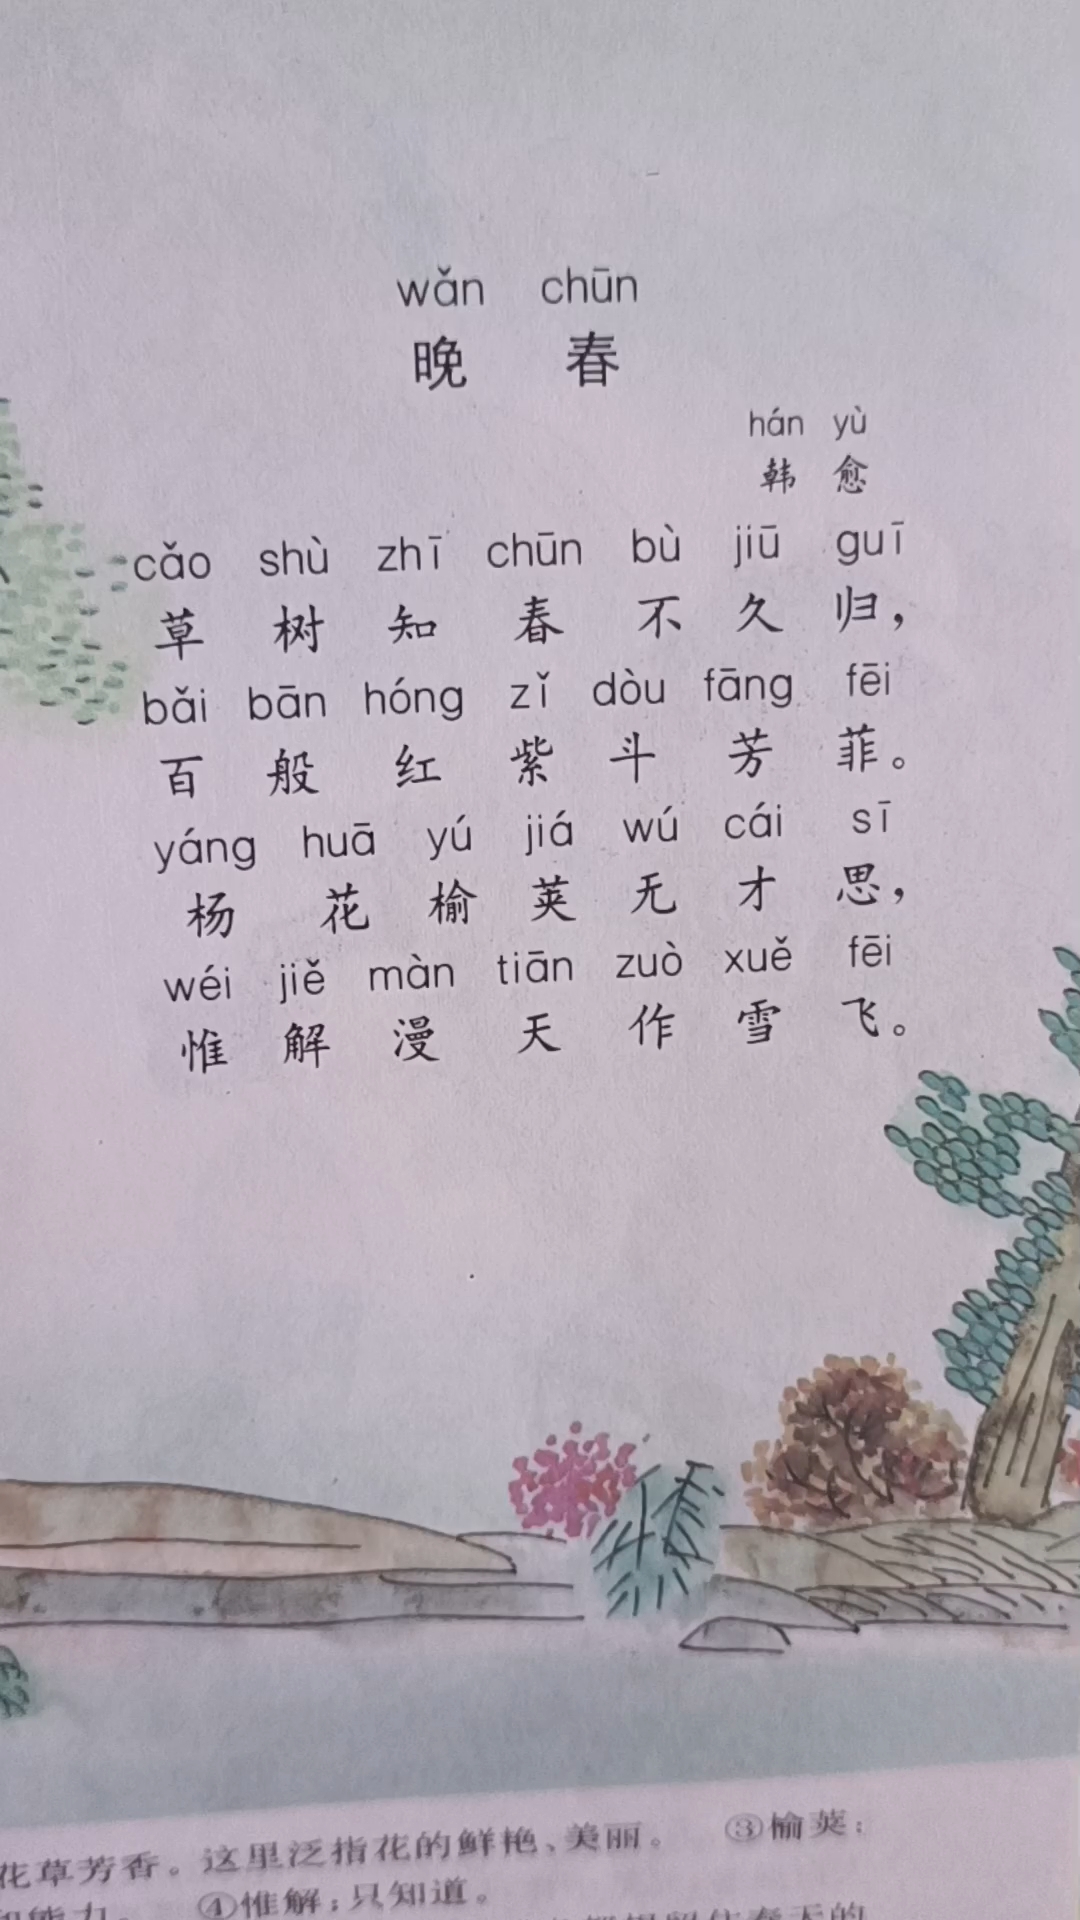 wǎn chūn
晚春
hán yù
韩愈
cǎo shù zhī chūn bù jiū guī
草树知春不久归，
bǎi bān hóng zǐ dòu fāng fēi
百般红紫斗芳菲。
yáng huā yú jiá wú cái sī
杨花榆荚无才思，
wéi jiě màn tiān zuò xuě fēi
惟解漫天作雪飞。
花草芳香。这里泛指花的鲜艳、美丽。 ③榆荚：
④惟解：只知道。